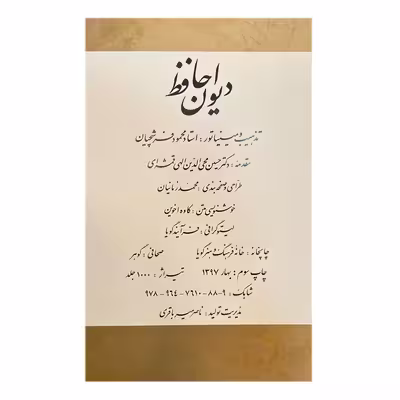 دیوان حافظ
تذهیب و مینیاتور : استاد محمود فرشچیان
مقدمه : دکتر حسین محی الدین الهی قمشه ای
طراحی و صفحه بندی : محمد زمانیان
خوشنویسی متن : کاوه اخوین
لیتوگرافی : فرآیند گویا
چاپخانه : خانه فرهنگ و هنر گویا صحافی : گوهر
چاپ سوم : بهار ۱۳۹۷ تیراژ : ۱۰۰۰ جلد
شابک : ۹-۸۸-۷۶۱۰-۹۶۴-۹۷۸
مدیریت تولید : ناصر میرباقری